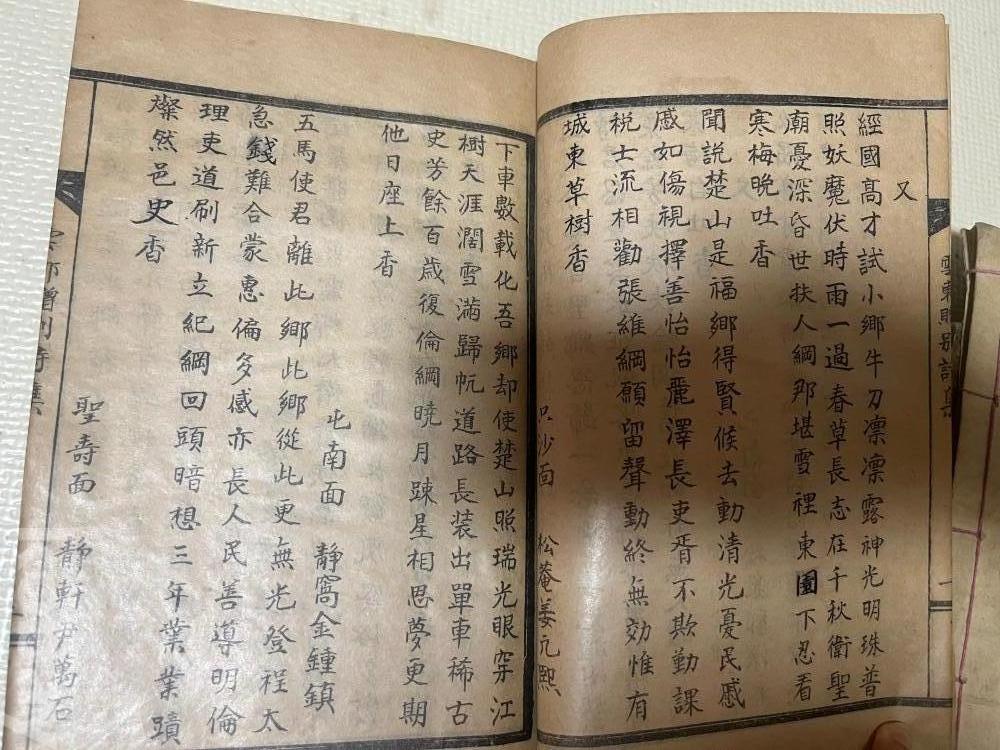 又
經國高才試小鄉牛刀凛凛露神光明珠普
照妖魔伏時雨一過春草長志在千秋衛聖
廟憂深昏世扶人綱那堪雪裡東園下忍看
寒梅晚吐香
聞說楚山是福鄉得賢候去動清光憂民戚
戚如傷視擇善怡怡麗澤長吏胥不欺勤課
税士流相勸張維綱願留聲動終無効惟有
城東草樹香
只沙面 松菴姜元熙
下車數載化吾鄉却使楚山照瑞光眼穿江
樹天涯濶雪滿歸帆道路長装出單車稀古
史芳餘百歲復倫綱曉月踈星相思夢更期
他日座上香
屯南面 靜窩金鍾鎮
五馬使君離此鄉此鄉從此更無光登程太
急錢難合蒙惠偏多感亦長人民善導明倫
理吏道刷新立紀綱回頭暗想三年業業蹟
燦然邑史香
聖壽面 靜軒尹萬石